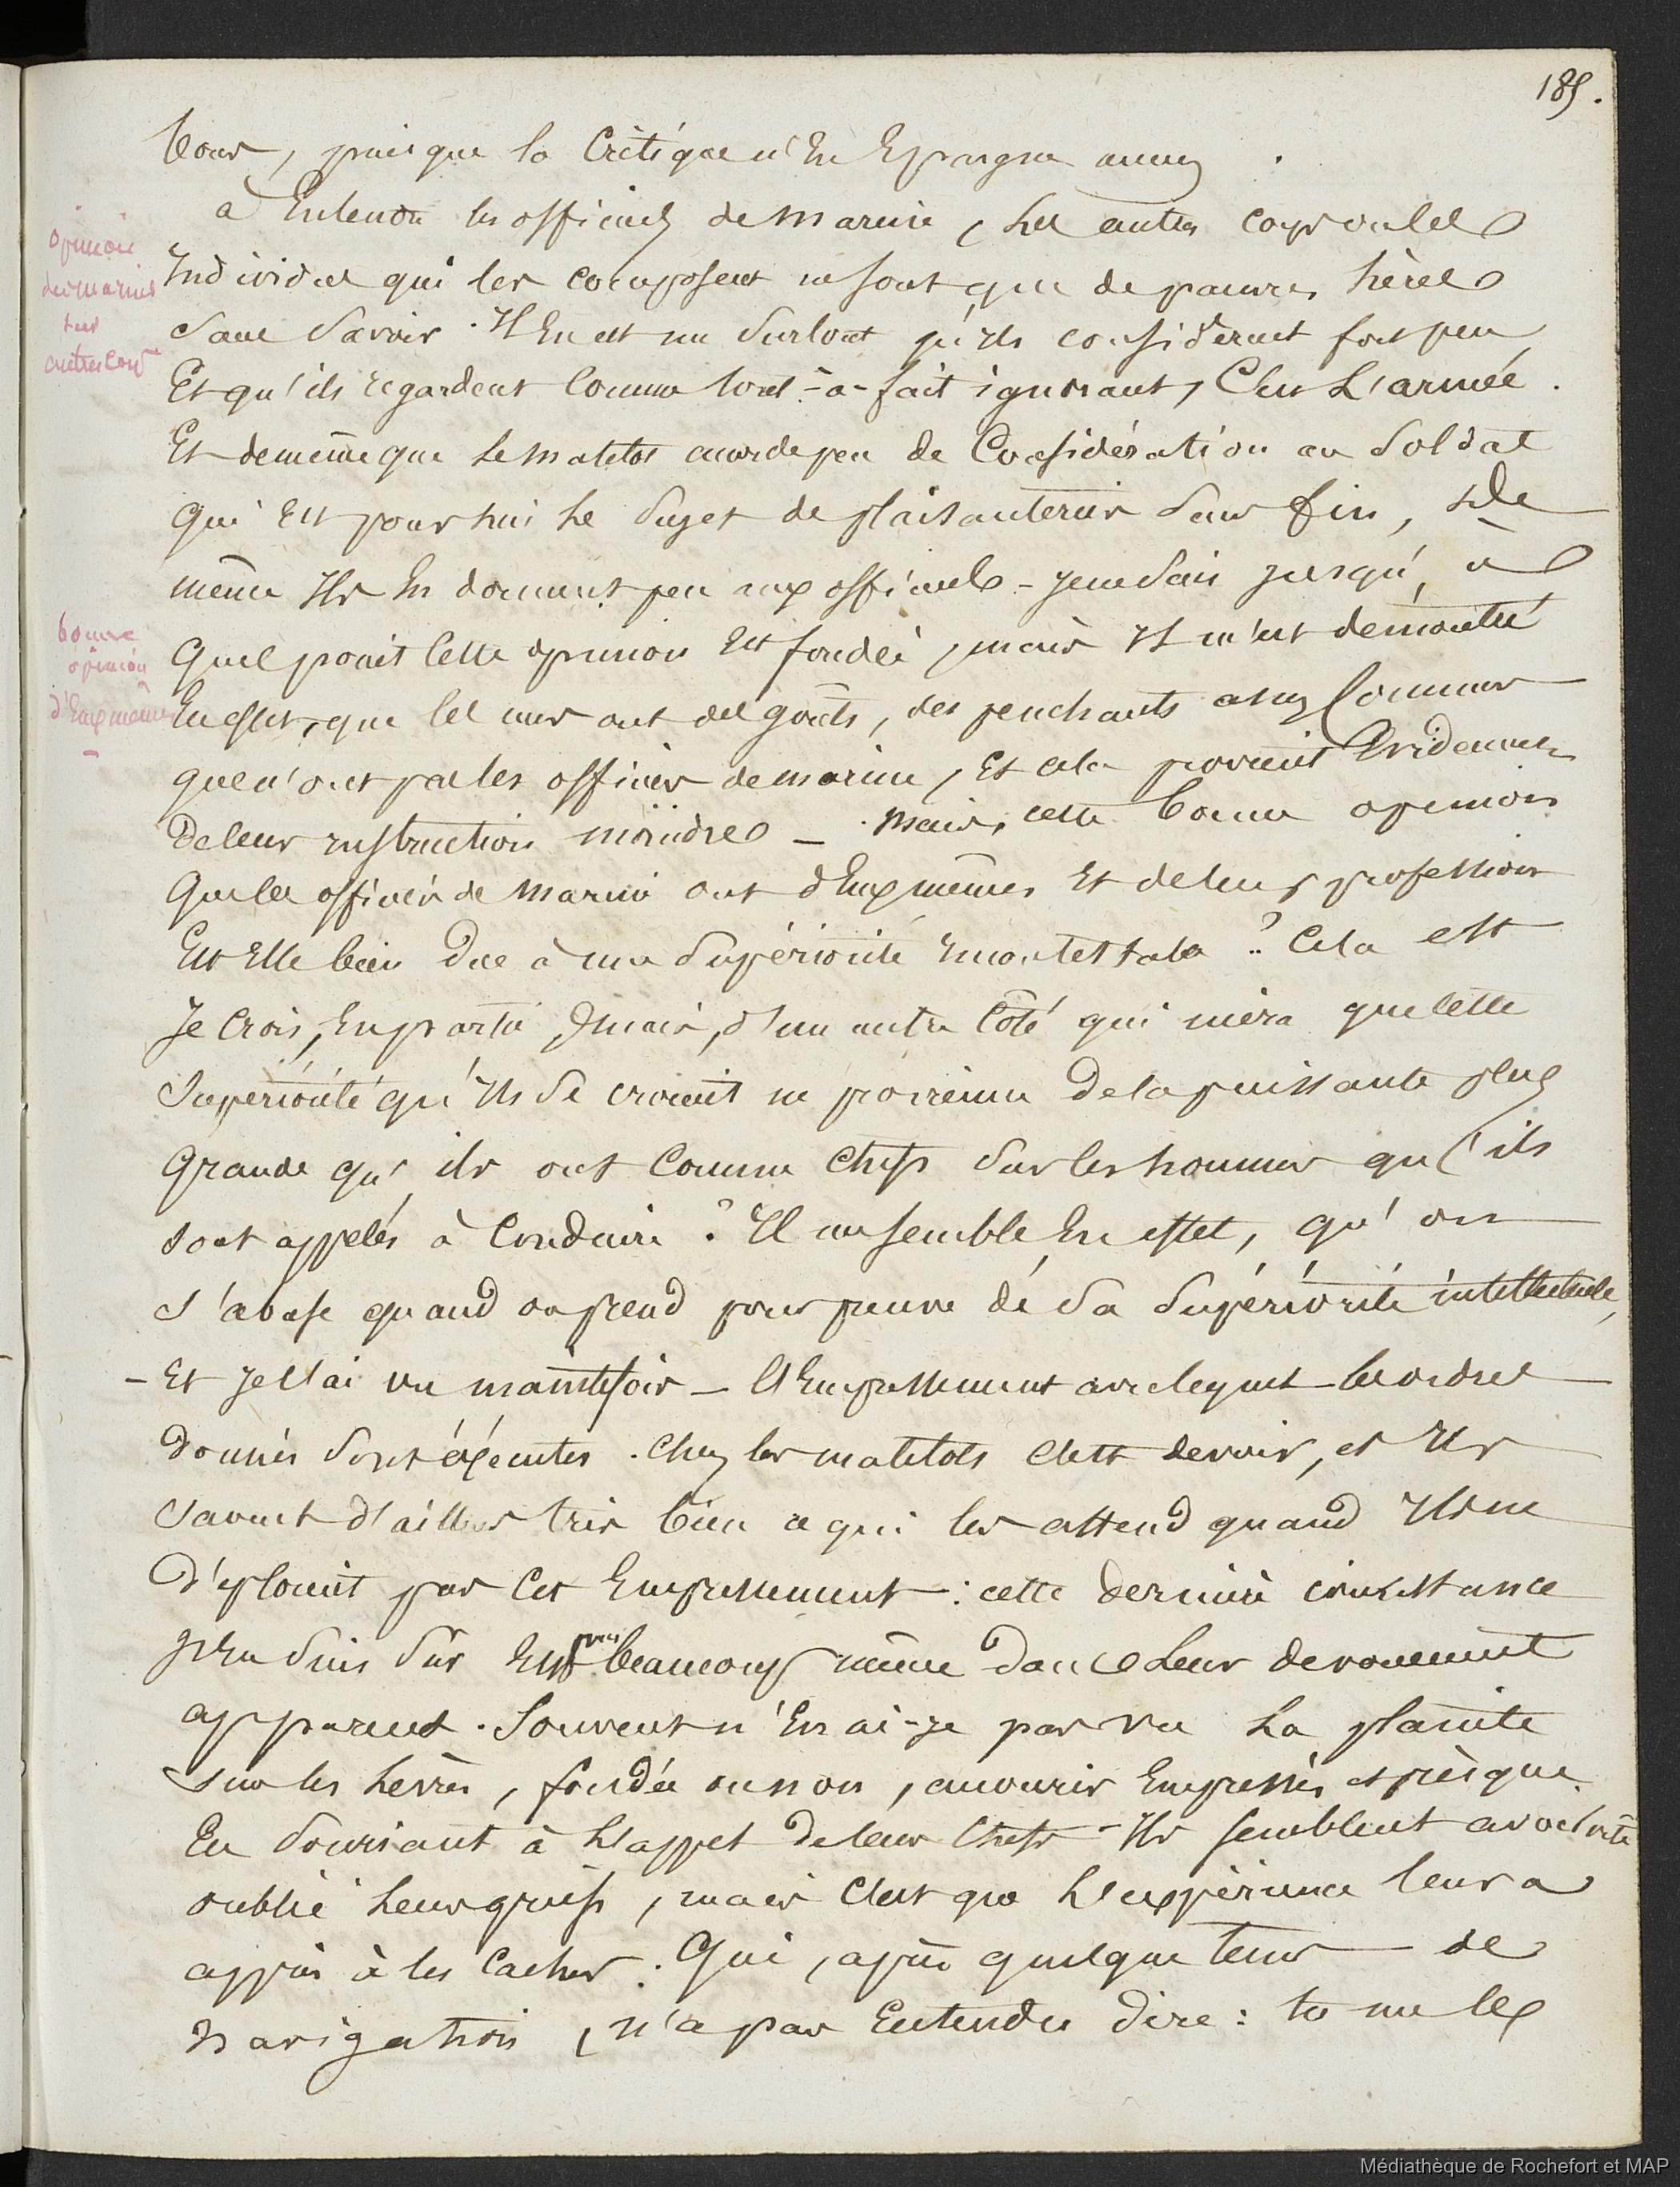 185.
tour, puisque la Critique n'En Epargne aucun.
à Entendre les officiers de marine, les autres corps ou les
opinion
des marins
sur
autres corps
Individus qui les composent ne sont que de pauvres hères
sans savoir. Il En est un surtout qu'ils considèrent fort peu,
Et qu'ils regardent Comme tout-à-fait ignorant, C'est L'armée.
Et de même que le matelot accorde peu de Considération au Soldat
qui Est pour lui le Sujet de plaisanteries Sans fin, de
même Ils En donnent peu aux officiers - je ne sais jusqu'à
bonne
opinion
d'Eux mêmes
quel point Cette opinion Est fondée, mais Il m'est démontré
En effet, que les uns ont des goûts, des penchants assez Communs
que n'ont pas les officiers de marine, Et cela provient Evidemment
De leur instruction moindre - mais, cette bonne opinion
que les officiers de marine ont d'Eux mêmes Et de leur profession
Est Elle bien Due à une Supériorité incontestable ? Cela est
Je Crois, En partie, mais, d'un autre Côté qui niera que cette
Supériorité qu'Ils Se croient ne provienne De la puissante plus
grande qu'ils ont Comme Chefs Sur les hommes qu'ils
sont appelés à Conduire ? Il me semble En effet, qu'on
s'abuse quand on prend pour preuve de Sa Supériorité intellectuelle,
- Et je l'ai vu maintefois - l'Empressement avec lequel les ordres
donnés Sont éxécutés. Chez les matelots C'est devoir, et Ils
Savent d'ailleurs très bien ce qui les attend quand Ils ne
d'éploient pas Cet Empressement : cette dernière circonstance
j'En Suis Sûr Est pour beaucoup même dans Leur devouement
apparent. Souvent n'En ai-je pas vu La plainte
sur les lèvres, fondée ou non, accourir Empressés et presque
En Souriant à L'appel De leurs Chefs - Ils semblent avoir vite
oublié Leurs griefs, mais C'est que L'expérience leur a
appris à les Cacher. Qui, après quelque tems de
navigation, n'a pas Entendu dire : tu me le